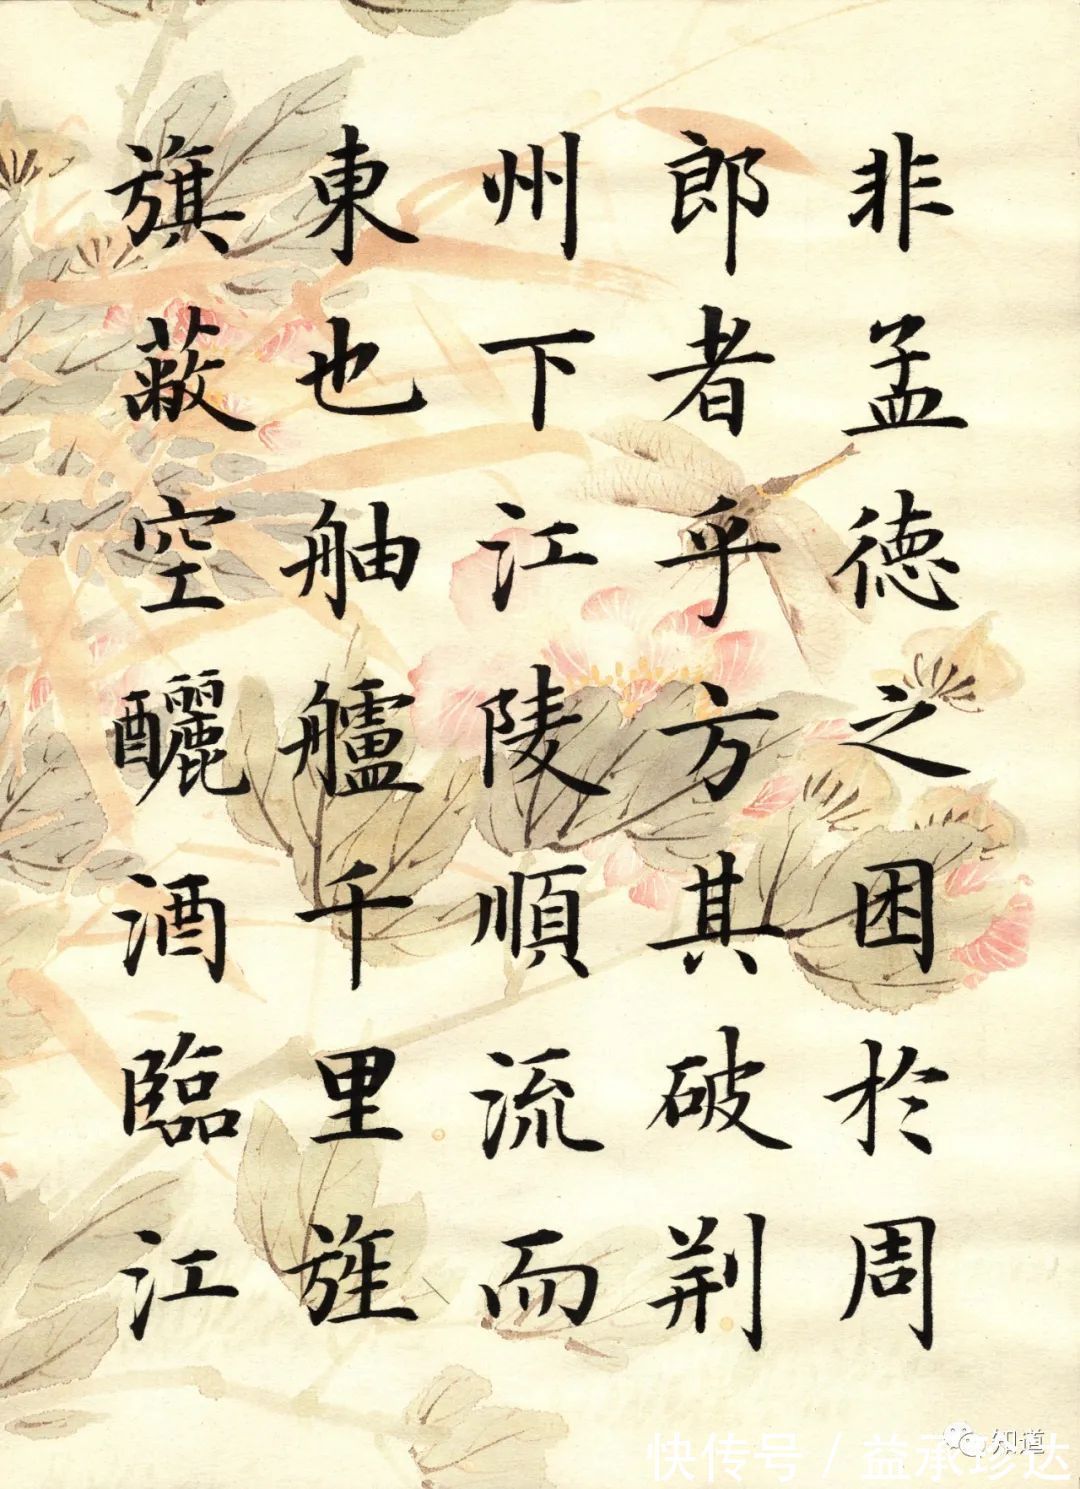 非孟德之困於周
郎者乎方其破荆
州下江陵順流而
東也舳艫千里旌
旗蔽空釃酒臨江
知道
快传号／益承珍达